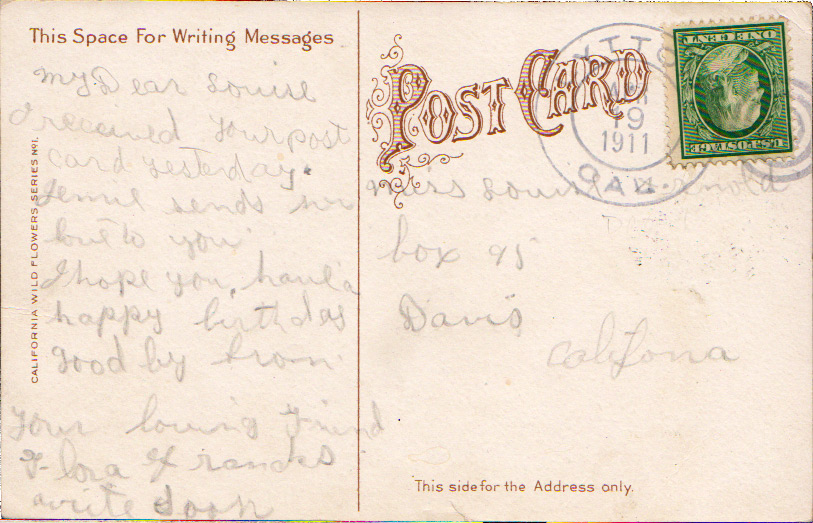 This Space For Writing Messages
My Dear Louise
I received your post
card yesterday.
Jennie sends her
love to you
I hope you have a
happy birthday
good by from
Your loving Friend
Flora Francks
write soon
CALIFORNIA WILD FLOWERS SERIES Nº1.
POST CARD
19
1911
CAL.
ONE CENT
U.S. POSTAGE
Miss Louise Arnold
box 95
Davis
Califona
This side for the Address only.